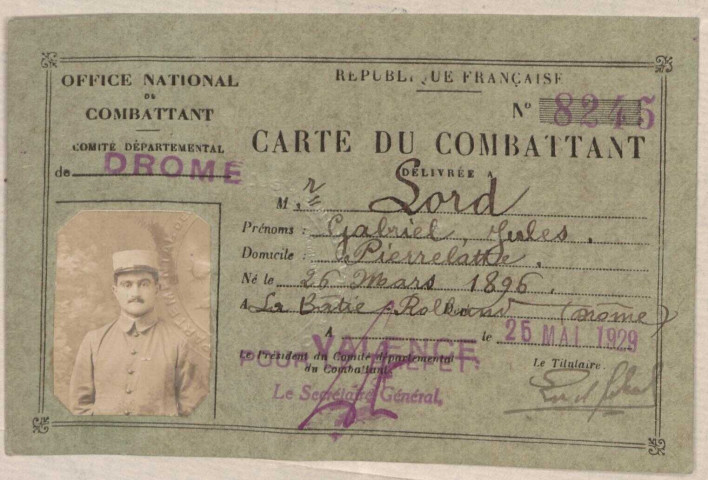 OFFICE NATIONAL
DU
COMBATTANT
COMITÉ DÉPARTEMENTAL
de DROME
RÉPUBLIQUE FRANÇAISE
N° 8245
CARTE DU COMBATTANT
DÉLIVRÉE A
M r Lord
Prénoms : Gabriel, Jules.
Domicile : Pierrelatte.
Né le 26 Mars 1896.
A La Bâtie Rolland (Drôme)
A VALENCE le 25 MAI 1929
Le Président du Comité départemental
du Combattant
POUR LE PREFET:
Le Secrétaire Général,
Le Titulaire